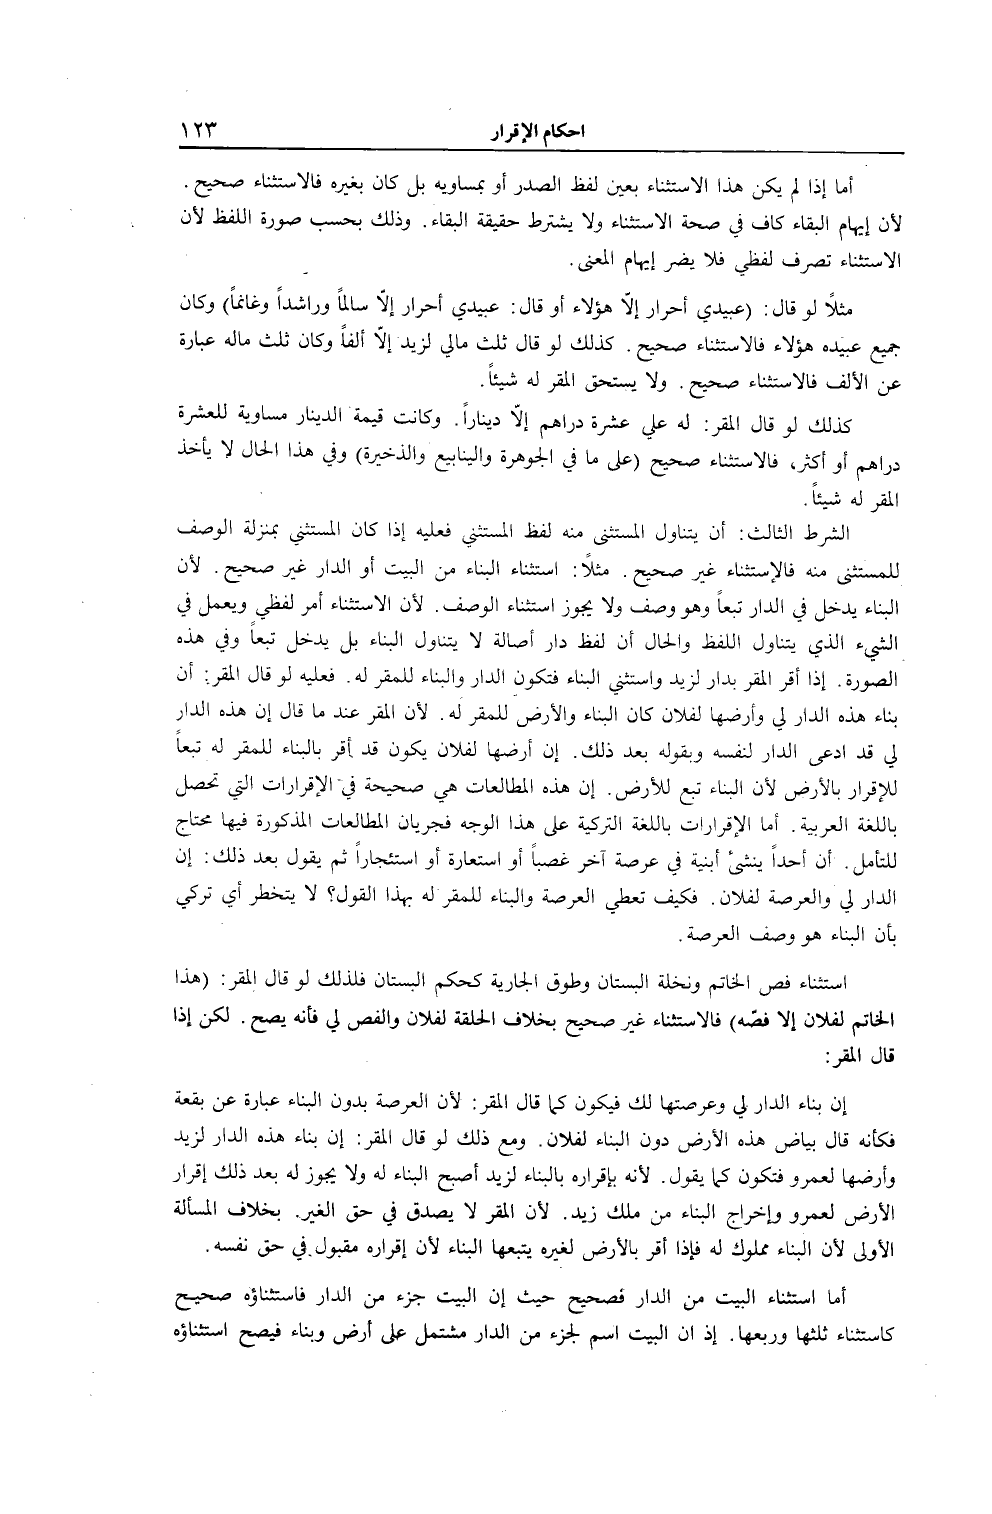 احكام الإقرار ١٢٣
أما إذا لم يكن هذا الاستثناء بعين لفظ الصدر أو بمساويه بل كان بغيره فالاستثناء صحيح .
لأن إيهام البقاء كاف في صحة الاستثناء ولا يشترط حقيقة البقاء . وذلك بحسب صورة اللفظ لأن
الاستثناء تصرف لفظي فلا يضر إيهام المعنى .
مثلًا لو قال : (عبيدي أحرار إلّا هؤلاء أو قال : عبيدي أحرار إلّا سالماً وراشداً وغانماً) وكان
جميع عبيده هؤلاء فالاستثناء صحيح . كذلك لو قال ثلث مالي لزيد إلّا ألفاً وكان ثلث ماله عبارة
عن الألف فالاستثناء صحيح . ولا يستحق المقر له شيئاً .
كذلك لو قال المقر : له علي عشرة دراهم إلّا ديناراً . وكانت قيمة الدينار مساوية للعشرة
دراهم أو أكثر، فالاستثناء صحيح (على ما في الجوهرة والينابيع والذخيرة) وفي هذا الحال لا يأخذ
المقر له شيئاً .
الشرط الثالث : أن يتناول المستثنى منه لفظ المستثني فعليه إذا كان المستثني بمنزلة الوصف
للمستثنى منه فالإستثناء غير صحيح . مثلاً : استثناء البناء من البيت أو الدار غير صحيح . لأن
البناء يدخل في الدار تبعاً وهو وصف ولا يجوز استثناء الوصف . لأن الاستثناء أمر لفظي ويعمل في
الشيء الذي يتناول اللفظ والحال أن لفظ دار أصالة لا يتناول البناء بل يدخل تبعاً وفي هذه
الصورة . إذا أقر المقر بدار لزيد واستثني البناء فتكون الدار والبناء للمقر له . فعليه لو قال المقر : أن
بناء هذه الدار لي وأرضها لفلان كان البناء والأرض للمقر له . لأن المقر عند ما قال إن هذه الدار
لي قد ادعى الدار لنفسه وبقوله بعد ذلك . إن أرضها لفلان يكون قد أقر بالبناء للمقر له تبعاً
للإقرار بالأرض لأن البناء تبع للأرض . إن هذه المطالعات هي صحيحة في الإقرارات التي تحصل
باللغة العربية . أما الإقرارات باللغة التركية على هذا الوجه فجريان المطالعات المذكورة فيها محتاج
للتأمل . أن أحداً ينشئ أبنية في عرصة آخر غصباً أو استعارة أو استئجاراً ثم يقول بعد ذلك : إن
الدار لي والعرصة لفلان . فكيف تعطي العرصة والبناء للمقر له بهذا القول؟ لا يتخطر أي تركي
بأن البناء هو وصف العرصة .
استثناء فص الخاتم ونخلة البستان وطوق الجارية كحكم البستان فلذلك لو قال المقر : (هذا
الخاتم لفلان إلا فصّه) فالاستثناء غير صحيح بخلاف الحلقة لفلان والفص لي فأنه يصح . لكن إذا
قال المقر :
إن بناء الدار لي وعرصتها لك فيكون كما قال المقر : لأن العرصة بدون البناء عبارة عن بقعة
فكأنه قال بياض هذه الأرض دون البناء لفلان . ومع ذلك لو قال المقر : إن بناء هذه الدار لزيد
وأرضها لعمرو فتكون كما يقول . لأنه بإقراره بالبناء لزيد أصبح البناء له ولا يجوز له بعد ذلك إقرار
الأرض لعمرو وإخراج البناء من ملك زيد . لأن المقر لا يصدق في حق الغير . بخلاف المسألة
الأولى لأن البناء مملوك له فإذا أقر بالأرض لغيره يتبعها البناء لأن إقراره مقبول في حق نفسه .
أما استثناء البيت من الدار فصحيح حيث إن البيت جزء من الدار فاستثناؤه صحيح
كاستثناء ثلثها وربعها . إذ ان البيت اسم لجزء من الدار مشتمل على أرض وبناء فيصح استثناؤه